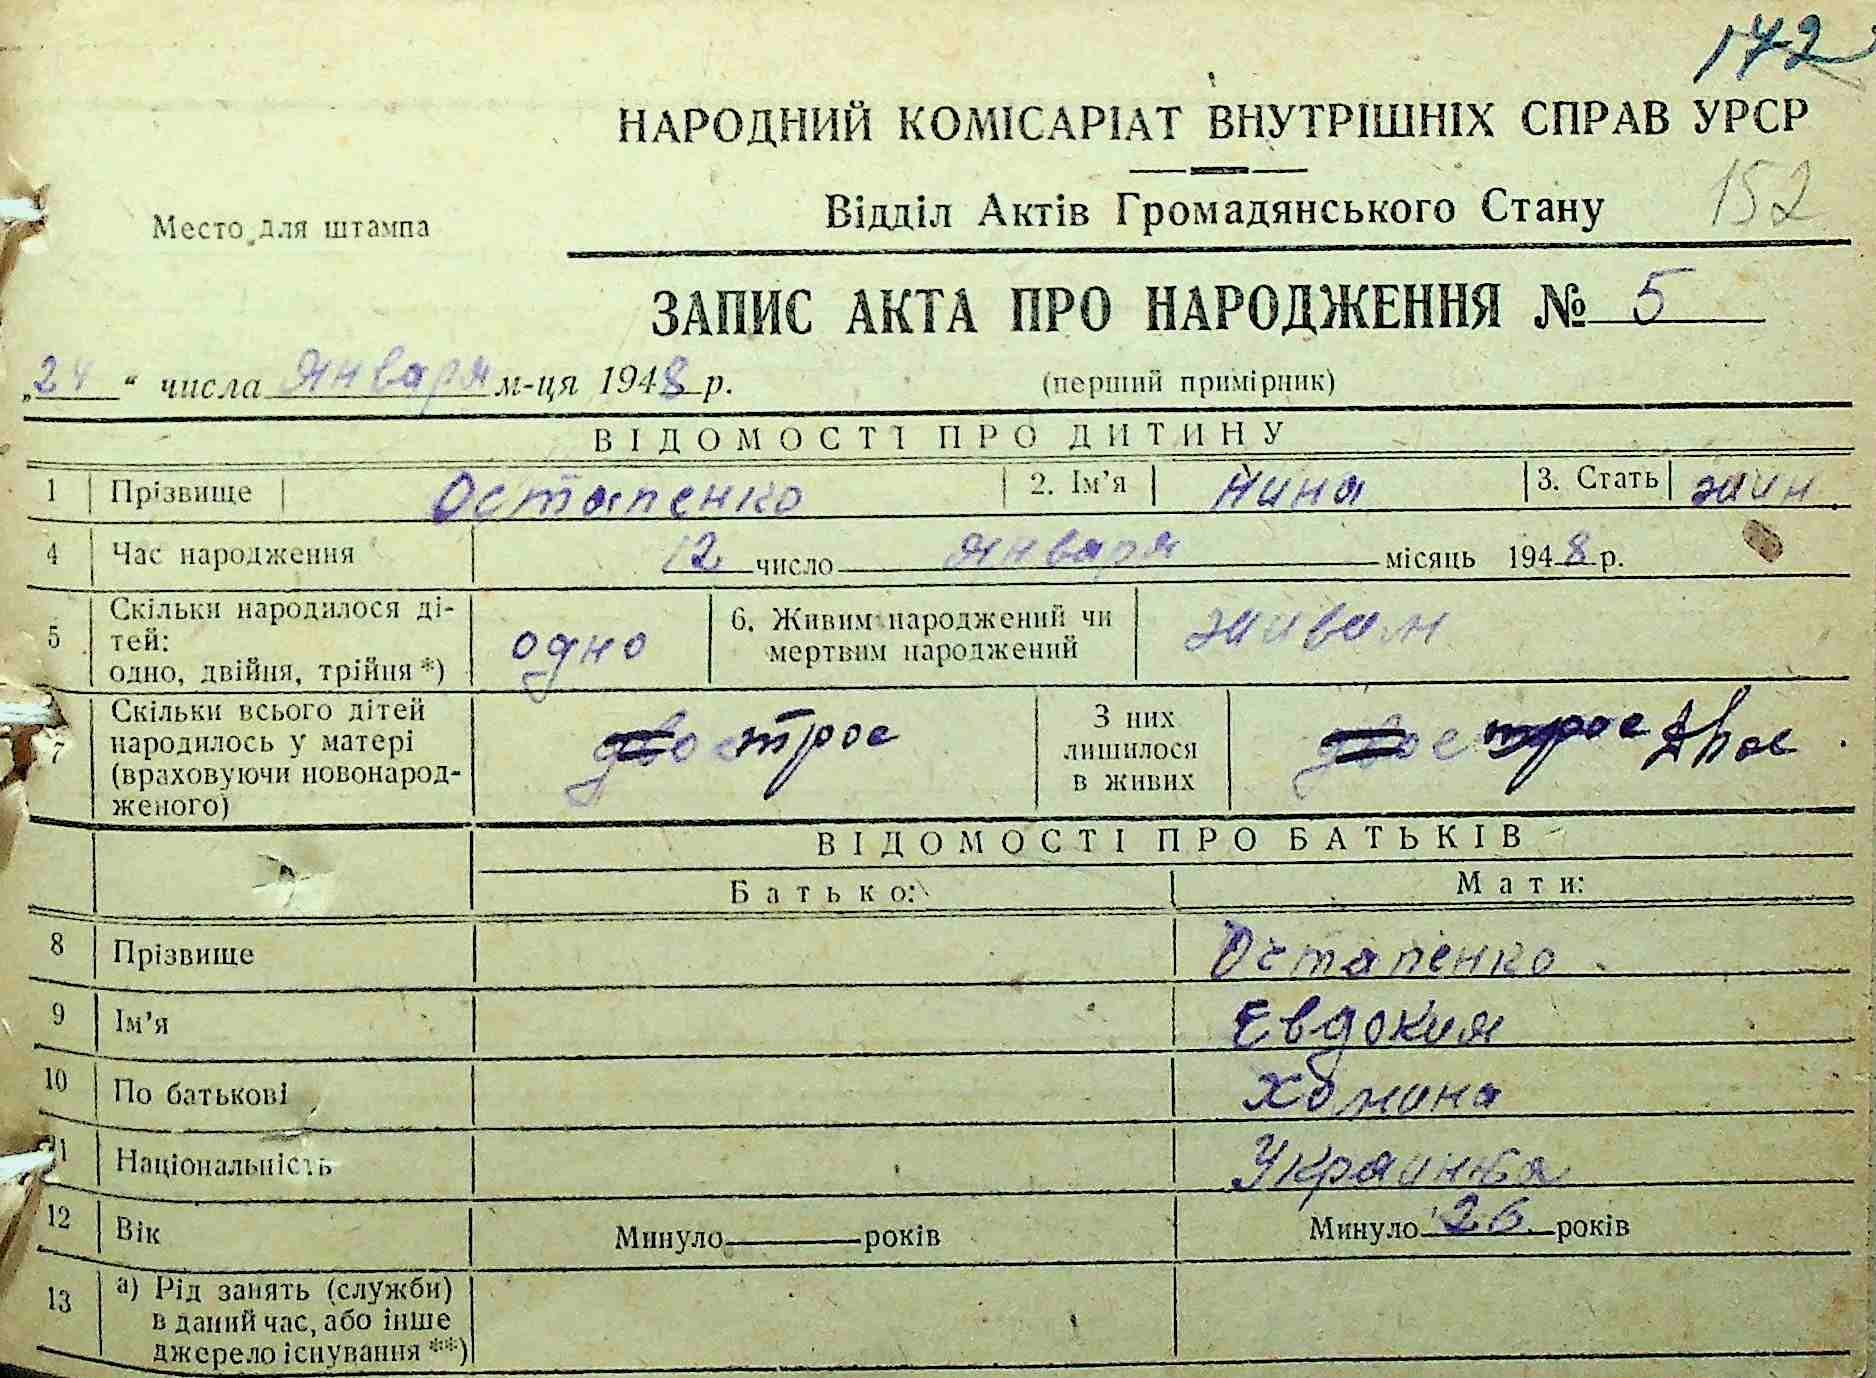 142
НАРОДНИЙ КОМІСАРІАТ ВНУТРІШНІХ СПРАВ УРСР
Відділ Актів Громадянського Стану 152
Место для штампа
ЗАПИС АКТА ПРО НАРОДЖЕННЯ № 5
„24“ числа января м-ця 1948 р. (перший примірник)
ВІДОМОСТІ ПРО ДИТИНУ
1 Прізвище Остапенко 2. Ім’я Нина 3. Стать жин
4 Час народження 12 число января місяць 1948 р.
5 Скільки народилося ді-
тей:
одно, двійня, трійня *) одно 6. Живим народжений чи
мертвим народжений живим
7 Скільки всього дітей
народилось у матері
(враховуючи новонарод-
женого) двое трое З них
лишилося
в живих двое трое двое
ВІДОМОСТІ ПРО БАТЬКІВ
Батько: Мати:
8 Прізвище Остапенко
9 Ім’я Евдокия
10 По батькові Хомина
11 Національність Украинка
12 Вік Минуло років Минуло 26 років
13 а) Рід занять (служби)
в даний час, або інше
джерело існування **)